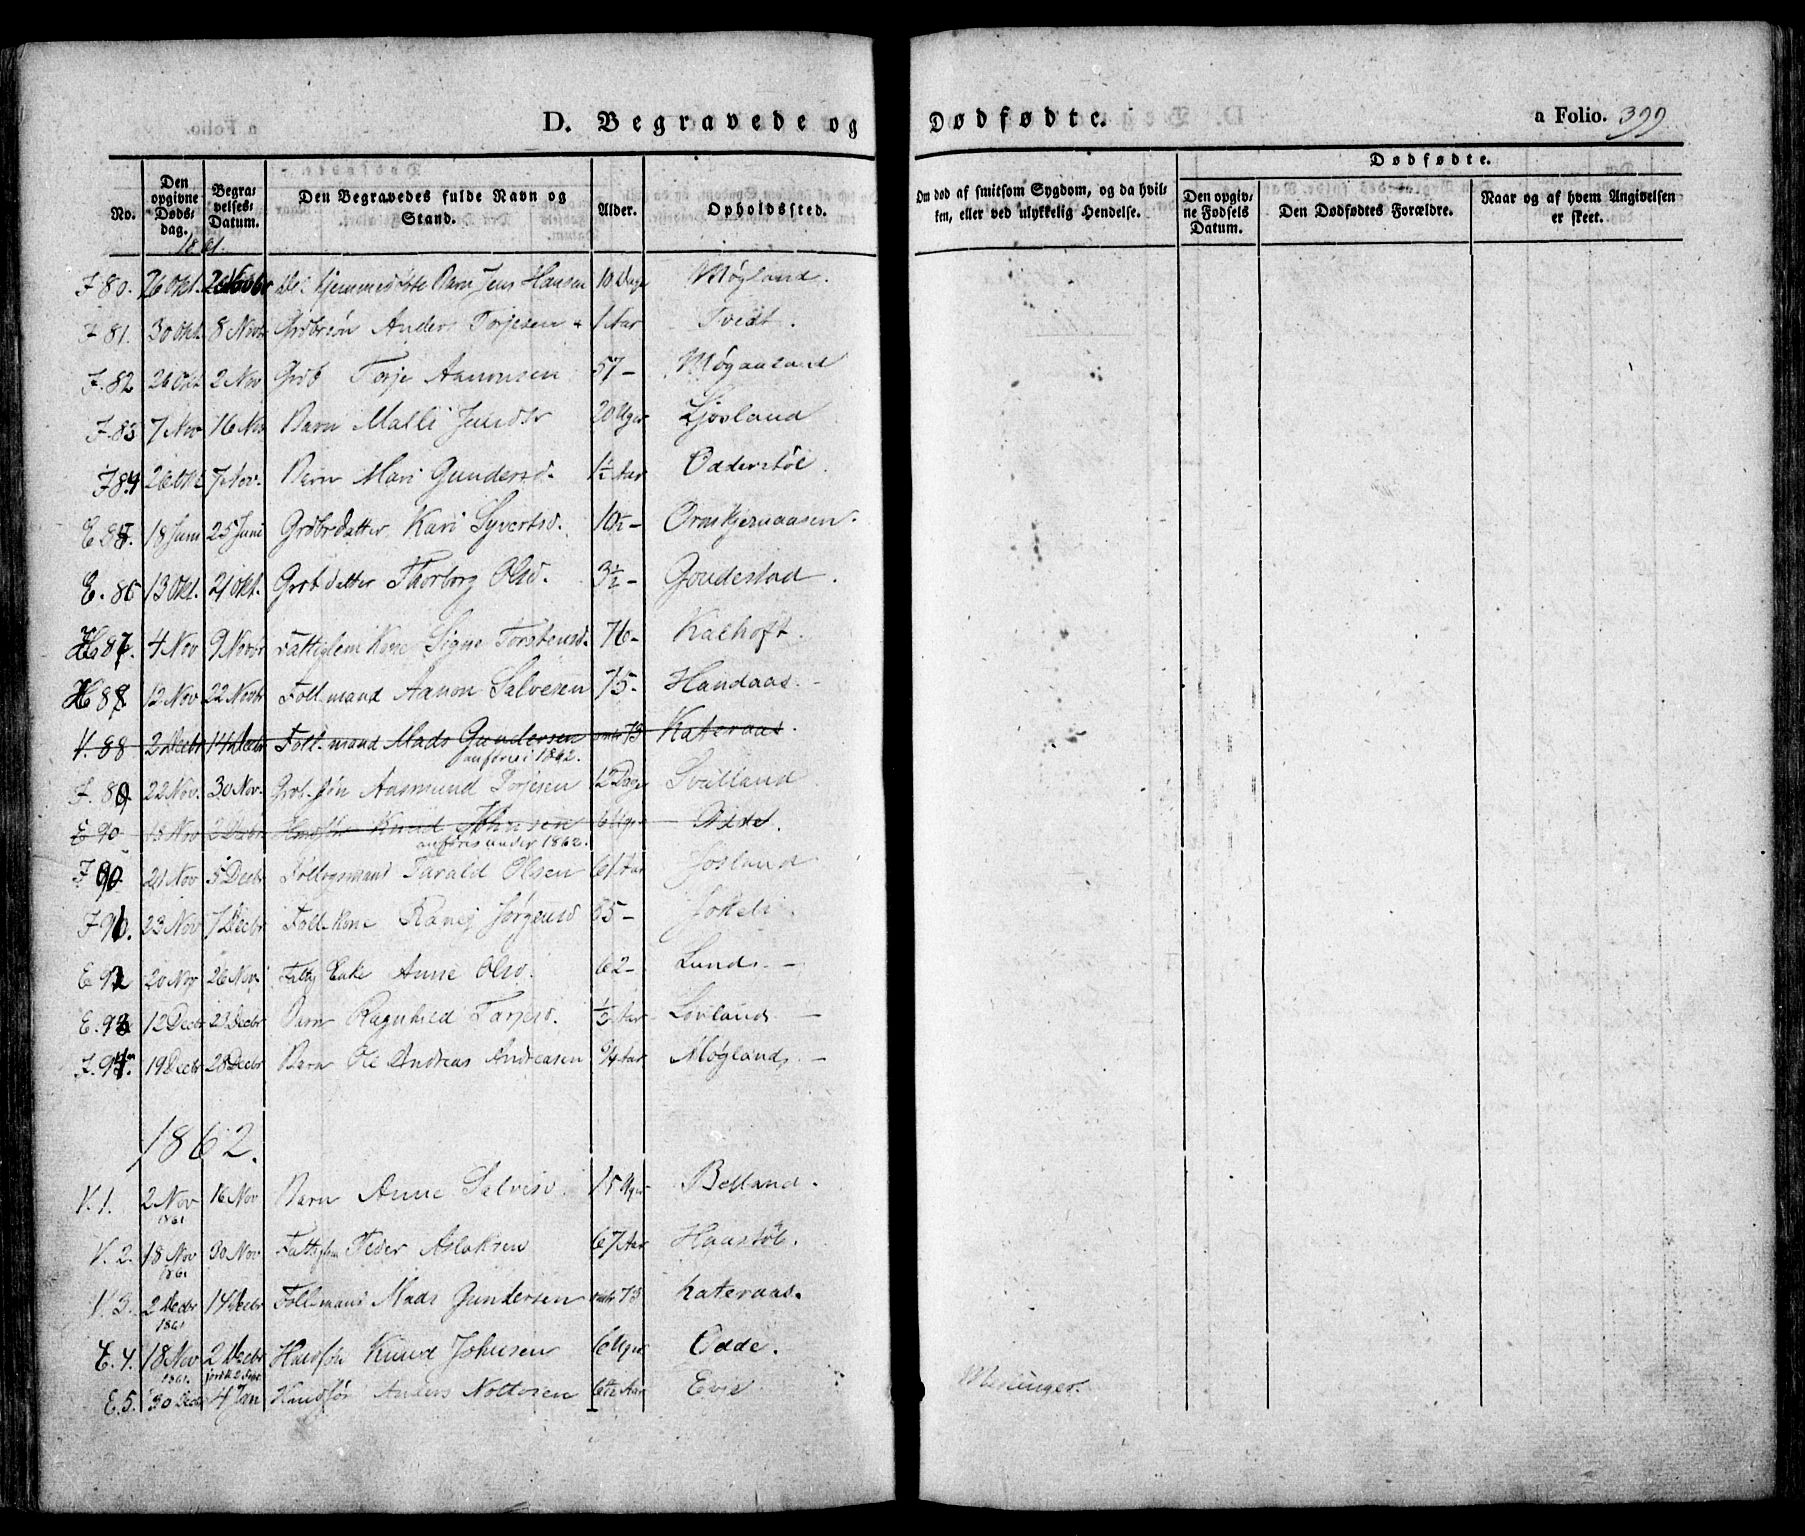 D. Begravede og Dødfødte. a Folio. 399
No. Den opgivne Døds-dag. Begra-velses-Datum. Den Begravedes fulde Navn og Stand. Alder. Opholdssted. Om død af smitsom Sygdom, og da hvil-ken, eller ved ulykkelig Hendelse. Dødfødte. Den opgiv-ne Fødsels Datum. Den Dødfødtes Forældre. Naar og af hvem Angivelsen er skeet.
1861.
I 80. 26 Okt. Hjemmedøbte Barn Jens Hansen 10 Dage Møgland.
I 81. 30 Okt. 8 Novbr Grdbrsøn Anders Torjesen 1 Aar Tvedt.
I. 82 26 Okt 2 Nov Grdb Torje Aanonsen 57 - Møgaaland
I. 83 7 Nov 16 Nov Barn Malli 20 Uger Ljosland
I 84 26 Okt 7 Nov. Barn Mari Gundersd. 1½ Aar Odderstøl.
E 85. 18 Juni 25 Juni Grdbrdatter Kari Syvertsd. 10½ - Ornskjernaasen.
E. 86 13 Okt. 21 Okt. Grdbdatter Thorborg Olsd. 3½ - Goudestad.
H 87. 4 Nov 9 Novbr Fattiglem Kone Signe Torstensd. 76 - Kalhoft.
H 88. 12 Nov 22 Novbr Foll.mand Aanon Salvesen 75 - Handaas.
V. 88 2 Decbr 14 Decbr Foll.mand Mads Gundersen omtr 73 Kateraas.
anføres i 1862.
I. 89 22 Nov. 30 Nov. Grdb.søn Aasmund Torjesen 12 Dage
E 90 18 Nov 2 Decbr Huusfsøn Knud Johnsen 6 Uger Odde.
anføres under 1862.
I 90. 21 Nov 5 Decbr Föderaadsmand Tarald Olsen 61 Aar Josland
I 91. 23 Nov 7 Decbr Foll.kone Ranei Jørgensd 85 -
E 92 20 Nov 26 Nov Fattig Enke Anne Olsd. 62 - Lunds. -
E. 93 12 Decbr 23 Decbr Barn Ragnhild Tarjesd. ⅓ Aar Lovlands -
I. 94. 19 Decbr 28 Decbr Barn Ole Andreas Andreasen ¾ Aar Møglands. -
1862.
V. 1. 2 Nov 1861 16 Nov Barn Anne Salvesd. 15 Uger Belland.
V. 2. 18 Nov 1861 30 Nov Fattiglem Peder Aslaksen 67 Aar Haastøl.
V 3. 2 Decbr 1861 14 Decbr Foll.mand Mads Gundersen omtr 73 Kateraas.
E. 4. 18 Nov 1861. 2 Decbr Huusfsøn Knud Johnsen 6 Uger Odde.
E. 5. 30 Decbr 4 Jan Huusfsøn Anders Nottosen 6½ Aar Evje Meslinger.